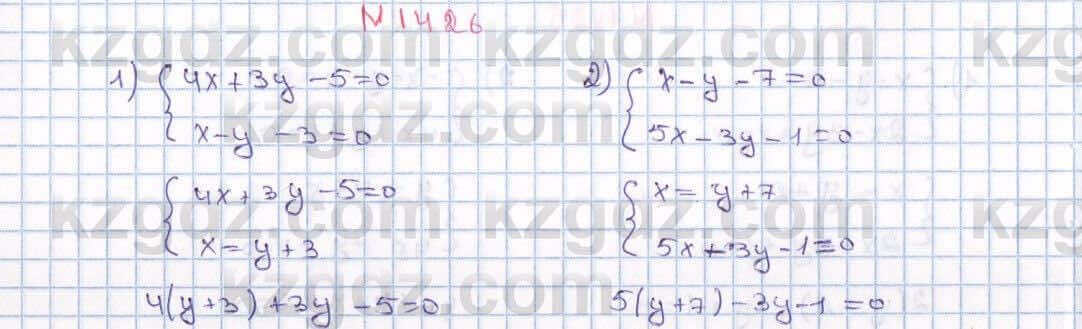 N1426
1) { 4x+3y-5=0
x-y-3=0
{ 4x+3y-5=0
x=y+3
4(y+3)+3y-5=0
2) { x-y-7=0
5x-3y-1=0
{ x=y+7
5x-3y-1=0
5(y+7)-3y-1=0
kzgdz.com kzgdz.com kz
kzgdz.com
kzgdz.com kzgdz.com kz
kzgdz.com